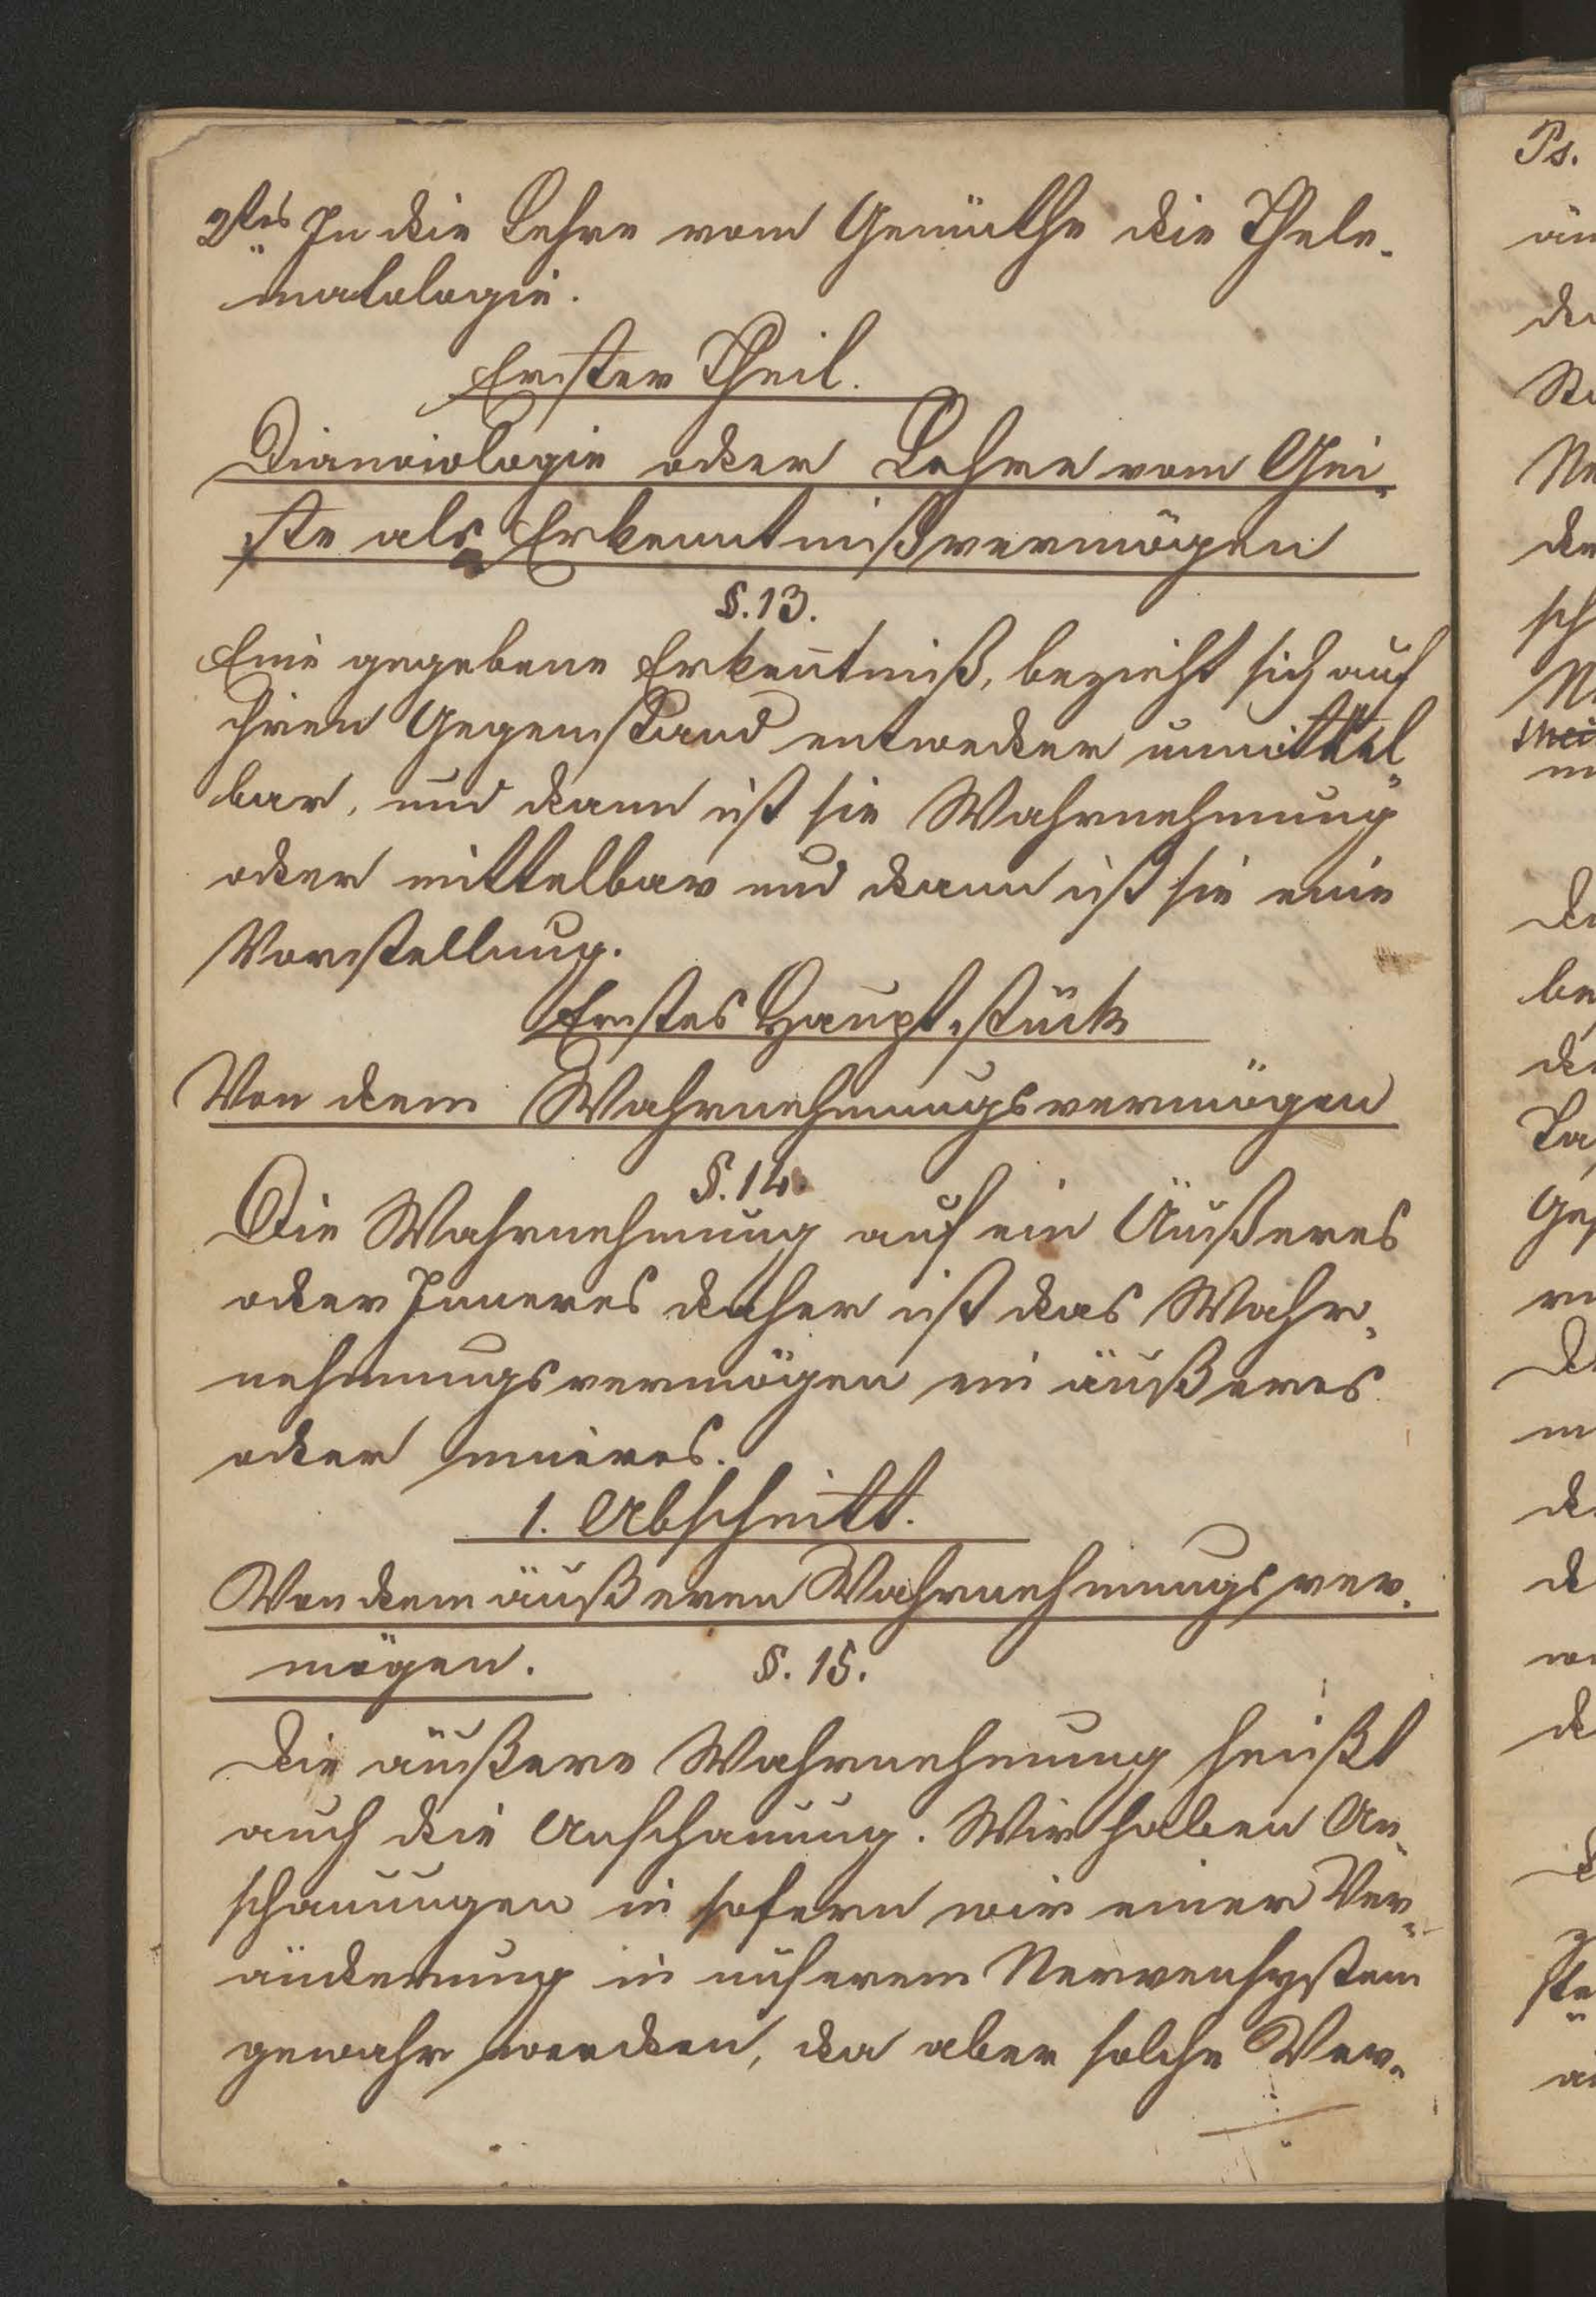 2tens In die Lehre vom Gemüthe die Thele-
matologie.
Erster Theil.
Dianoiologie oder Lehre vom Gei-
ste als Erkenntnißvermögen
§. 13.
Eine gegebene Erkenntniß, bezieht sich auf
ihren Gegenstand entweder unmittel-
bar, und dann ist sie Wahrnehmung
oder mittelbar und dann ist sie eine
Vorstellung.
Erstes Hauptstück
Von dem Wahrnehmungsvermögen
§. 14.
Die Wahrnehmung auf ein Äußeres
oder Inneres daher ist das Wahr-
nehmungsvermögen ein äußeres
oder inneres.
1. Abschnitt.
Von dem äußeren Wahrnehmungsver-
mögen. §. 15.
Die äußere Wahrnehmung heißt
auch die Anschauung. Wir haben An-
schauungen in sofern wir einer Ver-
änderung in unserem Nervensystem
gewahr werden, da aber solche Ver-
Ps.